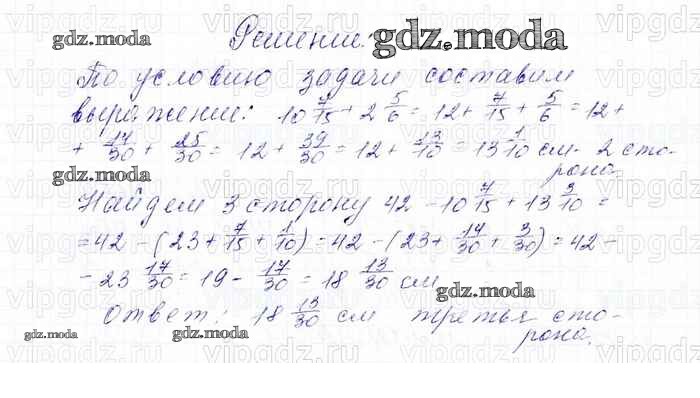 Решение. gdz.moda
По условию задачи составим
выражение: 10 7/15 + 2 5/6 = 12 + 7/15 + 5/6 = 12 +
+ 14/30 + 25/30 = 12 + 39/30 = 12 + 13/10 = 13 1/10 см - 2 сто-
рона.
Найдем 3 сторону 42 - 10 7/15 + 13 3/10 =
= 42 - (23 + 7/15 + 1/10) = 42 - (23 + 14/30 + 3/30) = 42 -
- 23 17/30 = 19 - 17/30 = 18 13/30 см
Ответ: 18 13/30 см третья сто-
рона.
gdz.moda
gdz.moda
gdz.moda
gdz.moda
gdz.moda
vipgdz.ru